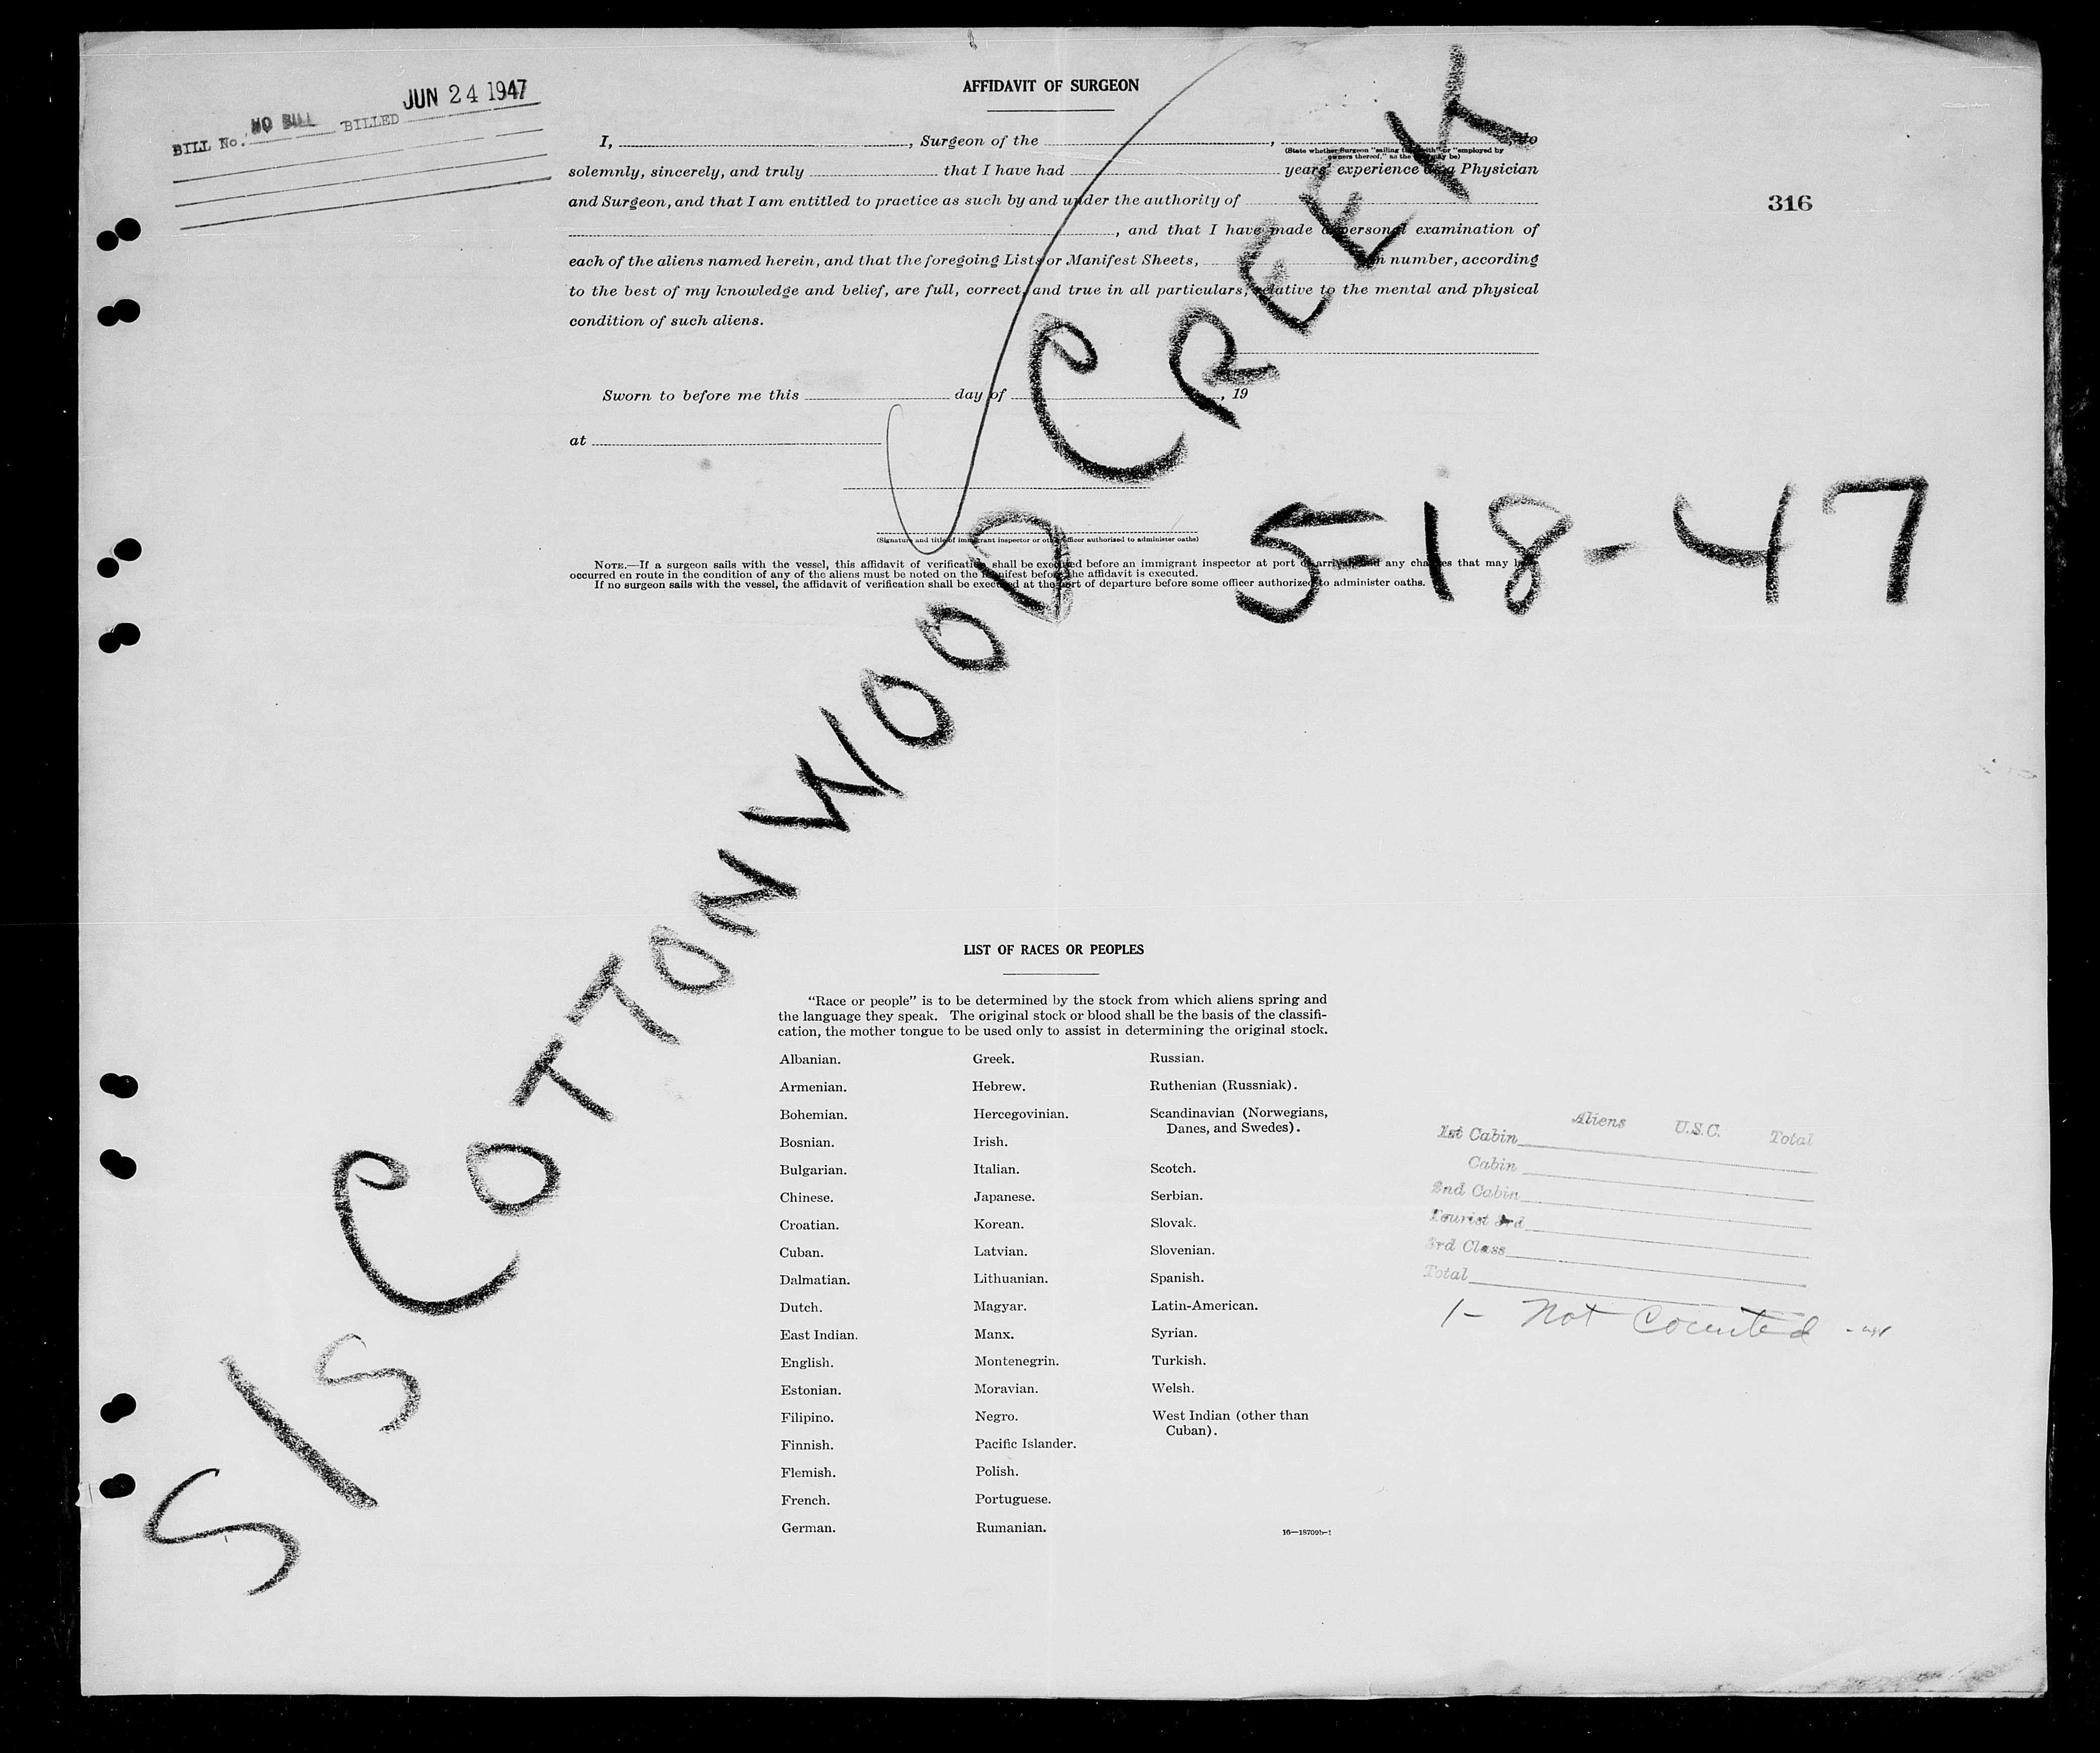 JUN 24 1947
BILL No. NO BILL BILLED
AFFIDAVIT OF SURGEON
I, , Surgeon of the , do
(State whether Surgeon "sailing therewith" or "employed by
owners thereof," as the case may be)
solemnly, sincerely, and truly that I have had years' experience as a Physician
and Surgeon, and that I am entitled to practice as such by and under the authority of
, and that I have made a personal examination of
each of the aliens named herein, and that the foregoing Lists or Manifest Sheets, in number, according
to the best of my knowledge and belief, are full, correct, and true in all particulars, relative to the mental and physical
condition of such aliens.
Sworn to before me this day of , 19
at
(Signature and title of immigrant inspector or other officer authorized to administer oaths)
NOTE.—If a surgeon sails with the vessel, this affidavit of verification shall be executed before an immigrant inspector at port of arrival and any changes that may have
occurred en route in the condition of any of the aliens must be noted on the manifest before the affidavit is executed.
If no surgeon sails with the vessel, the affidavit of verification shall be executed at the port of departure before some officer authorized to administer oaths.
316
S/S COTTONWOOD CREEK
5-18-47
LIST OF RACES OR PEOPLES
"Race or people" is to be determined by the stock from which aliens spring and
the language they speak. The original stock or blood shall be the basis of the classifi-
cation, the mother tongue to be used only to assist in determining the original stock.
Albanian.
Armenian.
Bohemian.
Bosnian.
Bulgarian.
Chinese.
Croatian.
Cuban.
Dalmatian.
Dutch.
East Indian.
English.
Estonian.
Filipino.
Finnish.
Flemish.
French.
German.
Greek.
Hebrew.
Hercegovinian.
Irish.
Italian.
Japanese.
Korean.
Latvian.
Lithuanian.
Magyar.
Manx.
Montenegrin.
Moravian.
Negro.
Pacific Islander.
Polish.
Portuguese.
Rumanian.
Russian.
Ruthenian (Russniak).
Scandinavian (Norwegians,
Danes, and Swedes).
Scotch.
Serbian.
Slovak.
Slovenian.
Spanish.
Latin-American.
Syrian.
Turkish.
Welsh.
West Indian (other than
Cuban).
16—18709b-1
Aliens U.S.C. Total
1st Cabin
Cabin
2nd Cabin
Tourist 3rd
3rd Class
Total
1- Not Counted